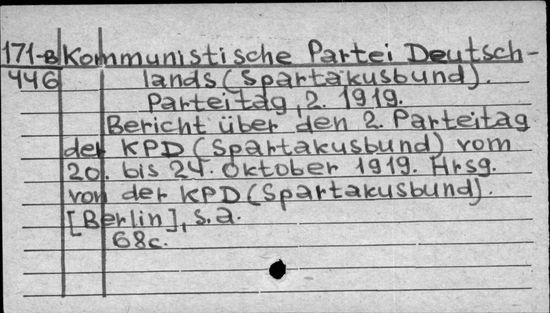 171-B Kommunistische Partei Deutsch-
446 lands (Spartakusbund).
Parteitag, 2. 1919.
Bericht über den 2. Parteitag
der KPD (Spartakusbund) vom
20. bis 24. Oktober 1919. Hrsg.
von der KPD (Spartakusbund).
[Berlin], s.a.
68c.